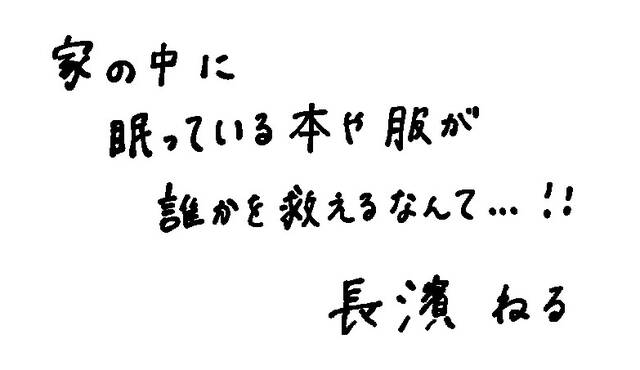 家の中に
眠っている本や服が
誰かを救えるなんて…!!
長濱 ねる